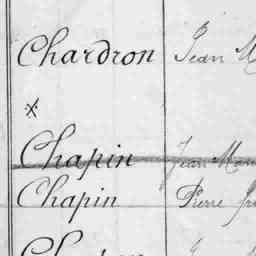 Chardron Jean
Chapin Jean
Chapin Pierre